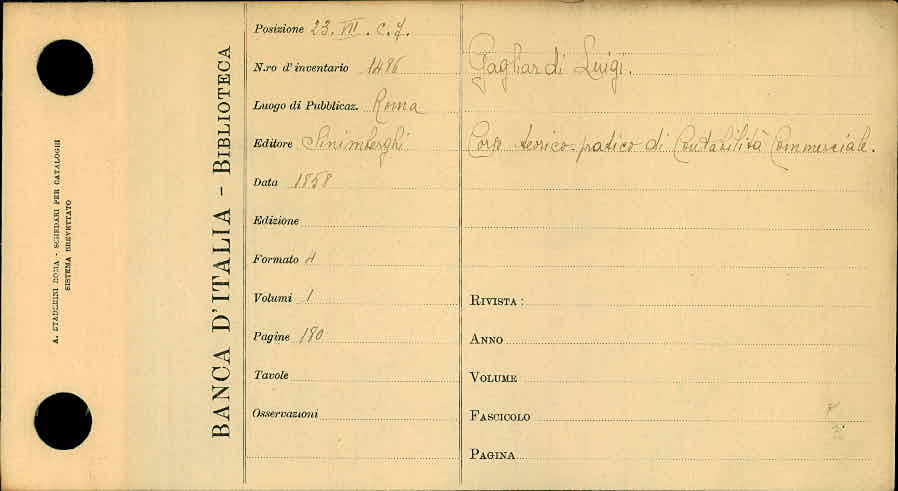 A. STADERINI ROMA - SCHEDARI PER CATALOGHI
SISTEMA BREVETTATO
BANCA D'ITALIA - BIBLIOTECA
Posizione 23. VII. C. 7.
N.ro d'inventario 1486
Luogo di Pubblicaz. Roma
Editore Sinimberghi
Data 1858
Edizione
Formato 4
Volumi 1
Pagine 190
Tavole
Osservazioni
Gagliardi Luigi.
Corso teorico-pratico di Contabilità Commerciale.
RIVISTA :
ANNO
VOLUME
FASCICOLO
PAGINA